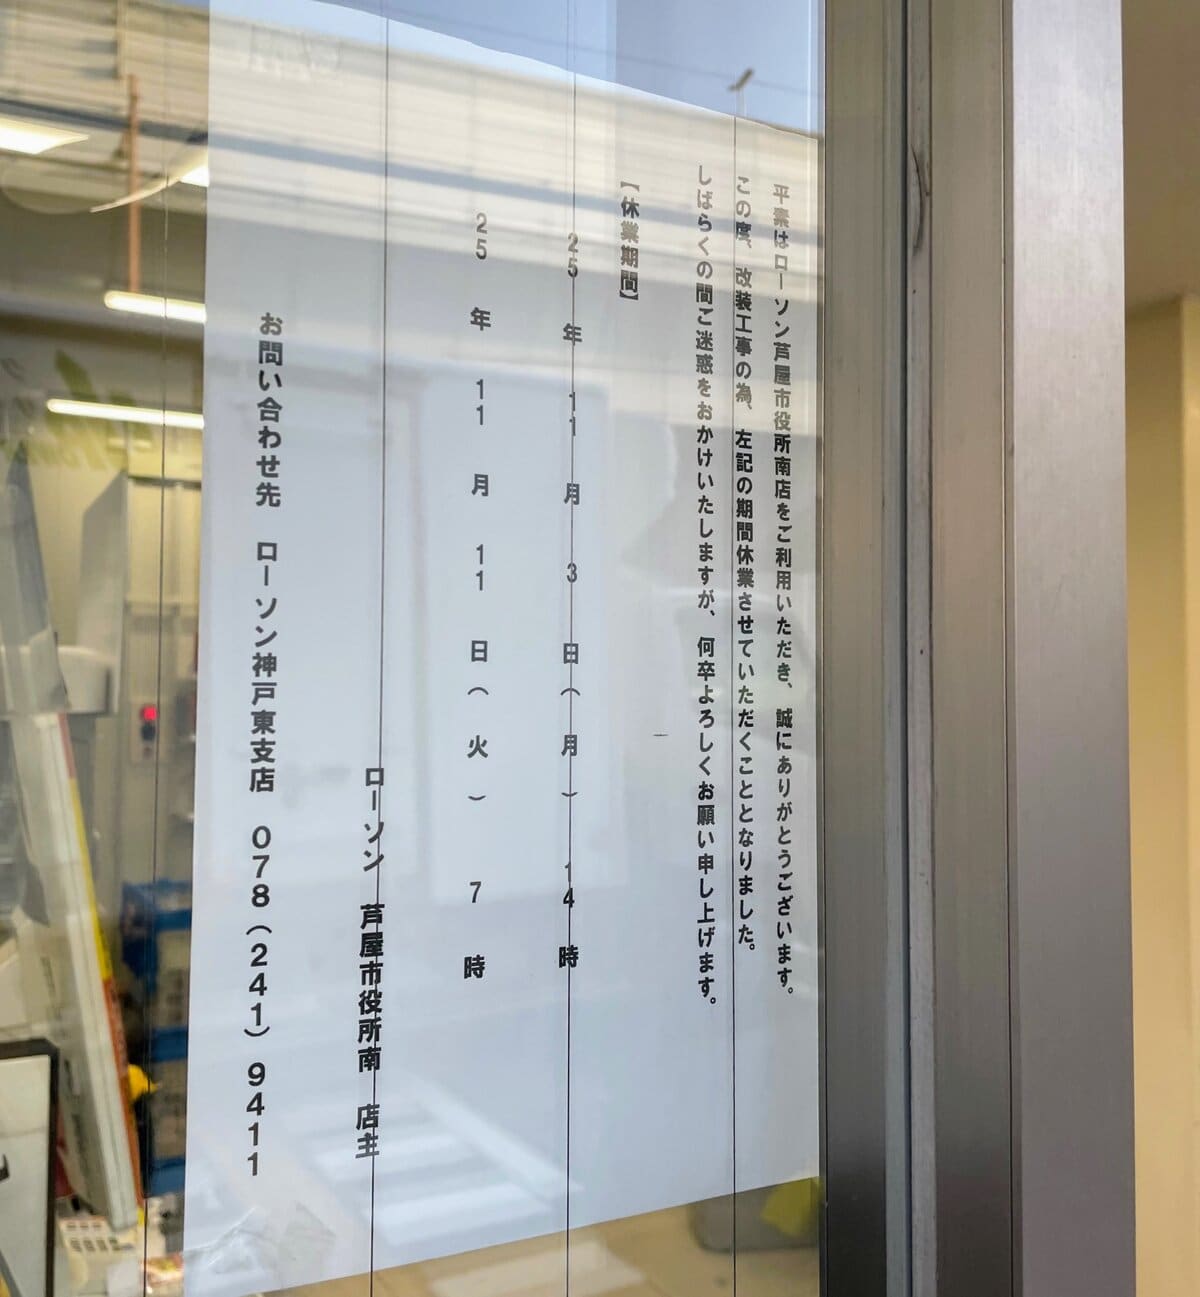 平素はローソン芦屋市役所南店をご利用いただき、誠にありがとうございます。
この度、改装工事の為、左記の期間休業させていただくこととなりました。
しばらくの間ご迷惑をおかけいたしますが、何卒よろしくお願い申し上げます。
【休業期間】
25年11月3日(月)14時
25年11月11日(火)7時
ローソン 芦屋市役所南 店主
お問い合わせ先 ローソン神戸東支店 078(241)9411